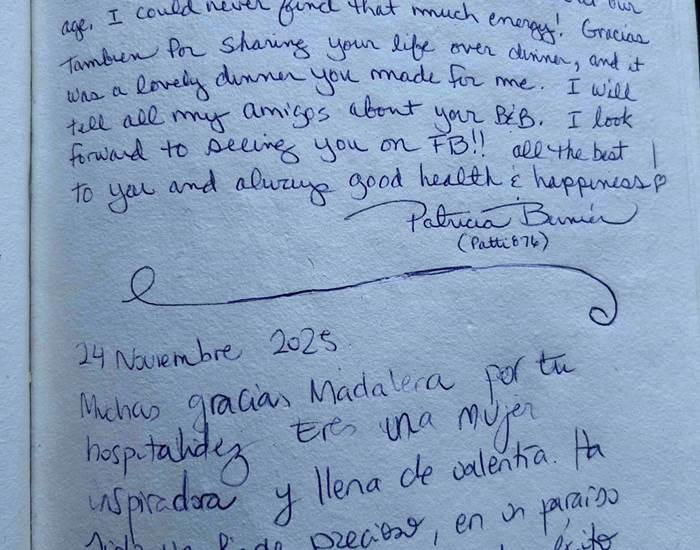 our
age. I could never find that much energy! Gracias
Tambien for sharing your life over dinner, and it
was a lovely dinner you made for me. I will
tell all my amigos about your B&B. I look
forward to seeing you on FB!! all the best
to you and always good health & happiness♡
Patricia
(Patti876)
24 Noviembre 2025
Muchas gracias Madalera por tu
hospitalidez. Eres una mujer
inspiradora y llena de valentia. Ha
precioso, en un paraiso
éxito